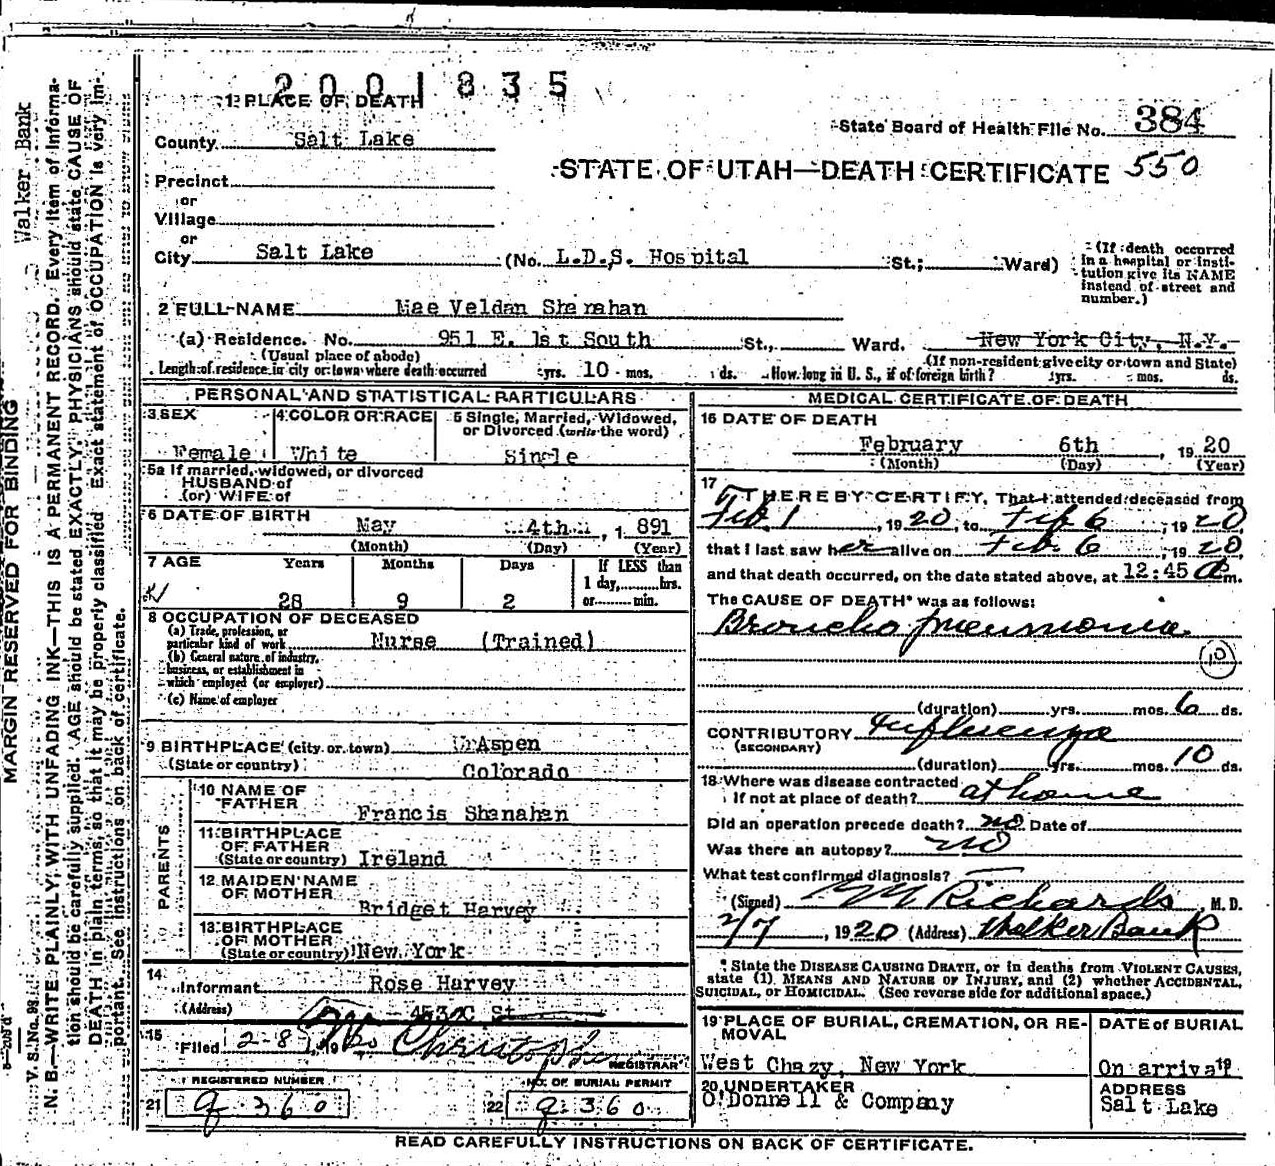 2001835
1 PLACE OF DEATH
County Salt Lake
State Board of Health File No. 384
Precinct
STATE OF UTAH—DEATH CERTIFICATE 550
or
Village
or
City Salt Lake (No. L.D.S. Hospital St.; Ward)
(If death occurred in a hospital or institution give its NAME instead of street and number.)
2 FULL NAME Mae Veldan Shanahan
(a) Residence. No. 951 E. 1st South St., Ward. New York City, N.Y.
(Usual place of abode) (If non-resident give city or town and State)
Length of residence in city or town where death occurred yrs. 10 mos. ds. How long in U. S., if of foreign birth? yrs. mos. ds.
PERSONAL AND STATISTICAL PARTICULARS
3 SEX Female
4 COLOR OR RACE White
5 Single, Married, Widowed, or Divorced (write the word) Single
5a If married, widowed, or divorced
HUSBAND of
(or) WIFE of
6 DATE OF BIRTH May 4th, 1891
(Month) (Day) (Year)
7 AGE Years Months Days If LESS than
28 9 2 1 day, hrs.
or min.
8 OCCUPATION OF DECEASED
(a) Trade, profession, or particular kind of work Nurse (Trained)
(b) General nature of industry, business, or establishment in which employed (or employer)
(c) Name of employer
9 BIRTHPLACE (city or town) Aspen
(State or country) Colorado
PARENTS
10 NAME OF FATHER Francis Shanahan
11 BIRTHPLACE OF FATHER (State or country) Ireland
12 MAIDEN NAME OF MOTHER Bridget Harvey
13 BIRTHPLACE OF MOTHER (State or country) New York
14
Informant Rose Harvey
(Address) 453 C St
15
Filed 2-8, 1920
REGISTRAR
REGISTERED NUMBER
21 360
NO. OF BURIAL PERMIT
22 360
MEDICAL CERTIFICATE OF DEATH
16 DATE OF DEATH
February 6th, 1920
(Month) (Day) (Year)
17 I HEREBY CERTIFY, That I attended deceased from
Feb 1, 1920, to Feb 6, 1920
that I last saw her alive on Feb 6, 1920,
and that death occurred, on the date stated above, at 12:45 a m.
The CAUSE OF DEATH* was as follows:
Broncho pneumonia
10
(duration) yrs. mos. 6 ds.
CONTRIBUTORY Influenza
(SECONDARY)
(duration) yrs. mos. 10 ds.
18 Where was disease contracted
if not at place of death? at home
Did an operation precede death? no Date of
Was there an autopsy? no
What test confirmed diagnosis?
(Signed) Richards, M. D.
2/7, 1920 (Address) Walker Bank
* State the DISEASE CAUSING DEATH, or in deaths from VIOLENT CAUSES,
state (1) MEANS AND NATURE OF INJURY, and (2) whether ACCIDENTAL,
SUICIDAL, or HOMICIDAL. (See reverse side for additional space.)
19 PLACE OF BURIAL, CREMATION, OR REMOVAL
West Chazy, New York
DATE of BURIAL
On arrival 19
20 UNDERTAKER
O'Donnell & Company
ADDRESS
Salt Lake
READ CAREFULLY INSTRUCTIONS ON BACK OF CERTIFICATE.
Walker Bank
MARGIN RESERVED FOR BINDING
V. S. No. 98
N. B.—WRITE PLAINLY, WITH UNFADING INK—THIS IS A PERMANENT RECORD. Every item of information should be carefully supplied. AGE should be stated EXACTLY. PHYSICIANS should state CAUSE OF DEATH in plain terms, so that it may be properly classified. Exact statement of OCCUPATION is very important. See instructions on back of certificate.